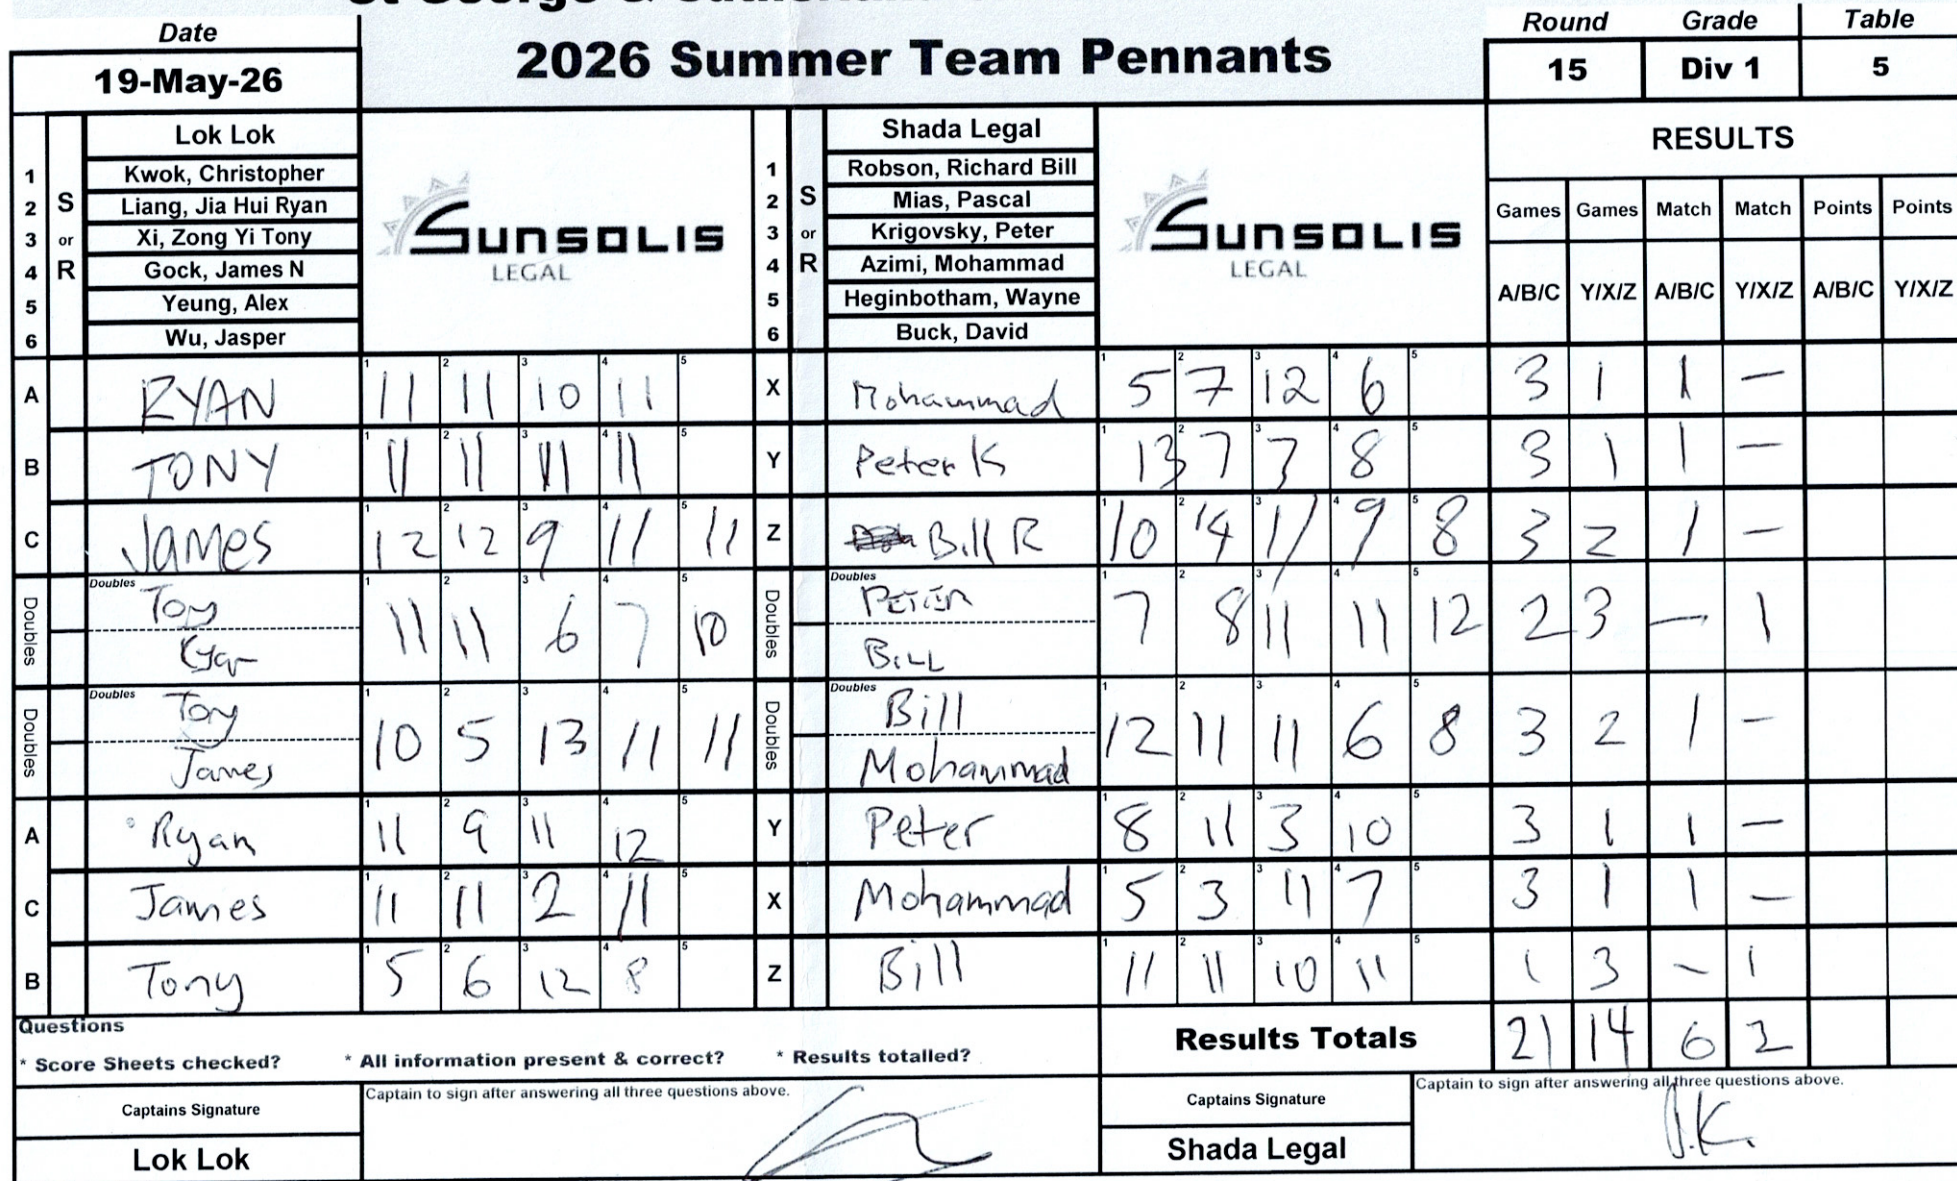 Date
2026 Summer Team Pennants
Round Grade Table
19-May-26
15 Div 1 5
Lok Lok
1 Kwok, Christopher
2 Liang, Jia Hui Ryan
3 Xi, Zong Yi Tony
4 Gock, James N
5 Yeung, Alex
6 Wu, Jasper
S or R
SUNSOLIS
LEGAL
Shada Legal
1 Robson, Richard Bill
2 Mias, Pascal
3 Krigovsky, Peter
4 Azimi, Mohammad
5 Heginbotham, Wayne
6 Buck, David
S or R
SUNSOLIS
LEGAL
RESULTS
Games Games Match Match Points Points
A/B/C Y/X/Z A/B/C Y/X/Z A/B/C Y/X/Z
A RYAN 11 11 10 11 X Mohammad 5 7 12 6 3 1 1 –
B TONY 11 11 11 11 Y Peter K 13 7 7 8 3 1 1 –
C JAMES 12 12 9 11 11 Z Bill R 10 14 11 9 8 3 2 1 –
Doubles Tony 11 11 6 7 10 Doubles PETER 7 8 11 11 12 2 3 — 1
Ryan BILL
Doubles Tony 10 5 13 11 11 Doubles Bill 12 11 11 6 8 3 2 1 –
James Mohammad
A Ryan 11 9 11 12 Y Peter 8 11 3 10 3 1 1 –
C James 11 11 2 11 X Mohammad 5 3 11 7 3 1 1 –
B Tony 5 6 12 8 Z Bill 11 11 10 11 1 3 – 1
Questions
* Score Sheets checked? * All information present & correct? * Results totalled?
Results Totals 21 14 6 2
Captains Signature
Captain to sign after answering all three questions above.
Captains Signature
Captain to sign after answering all three questions above.
Lok Lok
Shada Legal
P.K.